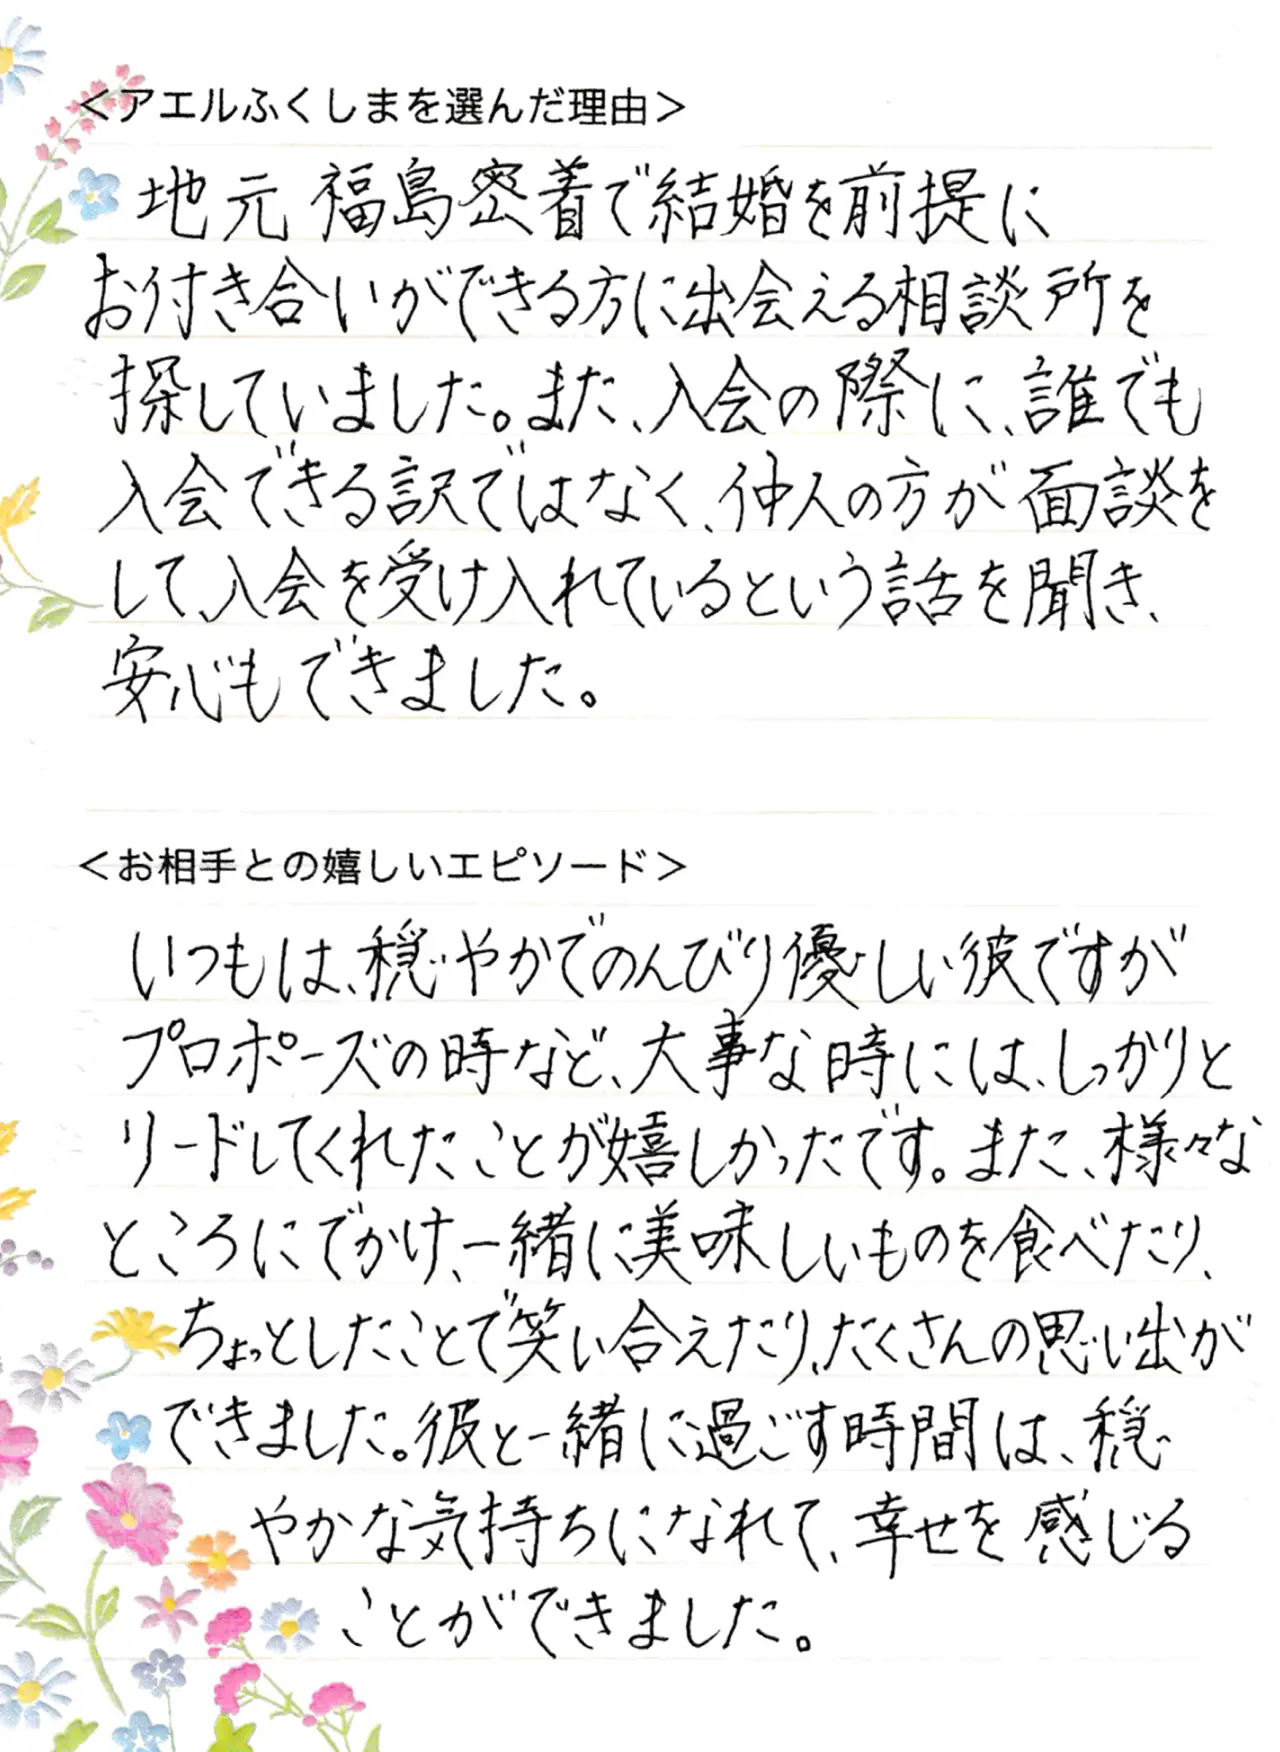 ＜アエルふくしまを選んだ理由＞
地元福島密着で結婚を前提に
お付き合いができる方に出会える相談所を
探していました。また、入会の際に、誰でも
入会できる訳ではなく、仲人の方が面談を
して、入会を受け入れているという話を聞き、
安心もできました。
＜お相手との嬉しいエピソード＞
いつもは、穏やかでのんびり優しい彼ですが
プロポーズの時など、大事な時には、しっかりと
リードしてくれたことが嬉しかったです。また、様々な
ところにでかけ、一緒に美味しいものを食べたり、
ちょっとしたことで笑い合えたり、たくさんの思い出が
できました。彼と一緒に過ごす時間は、穏
やかな気持ちになれて、幸せを感じる
ことができました。